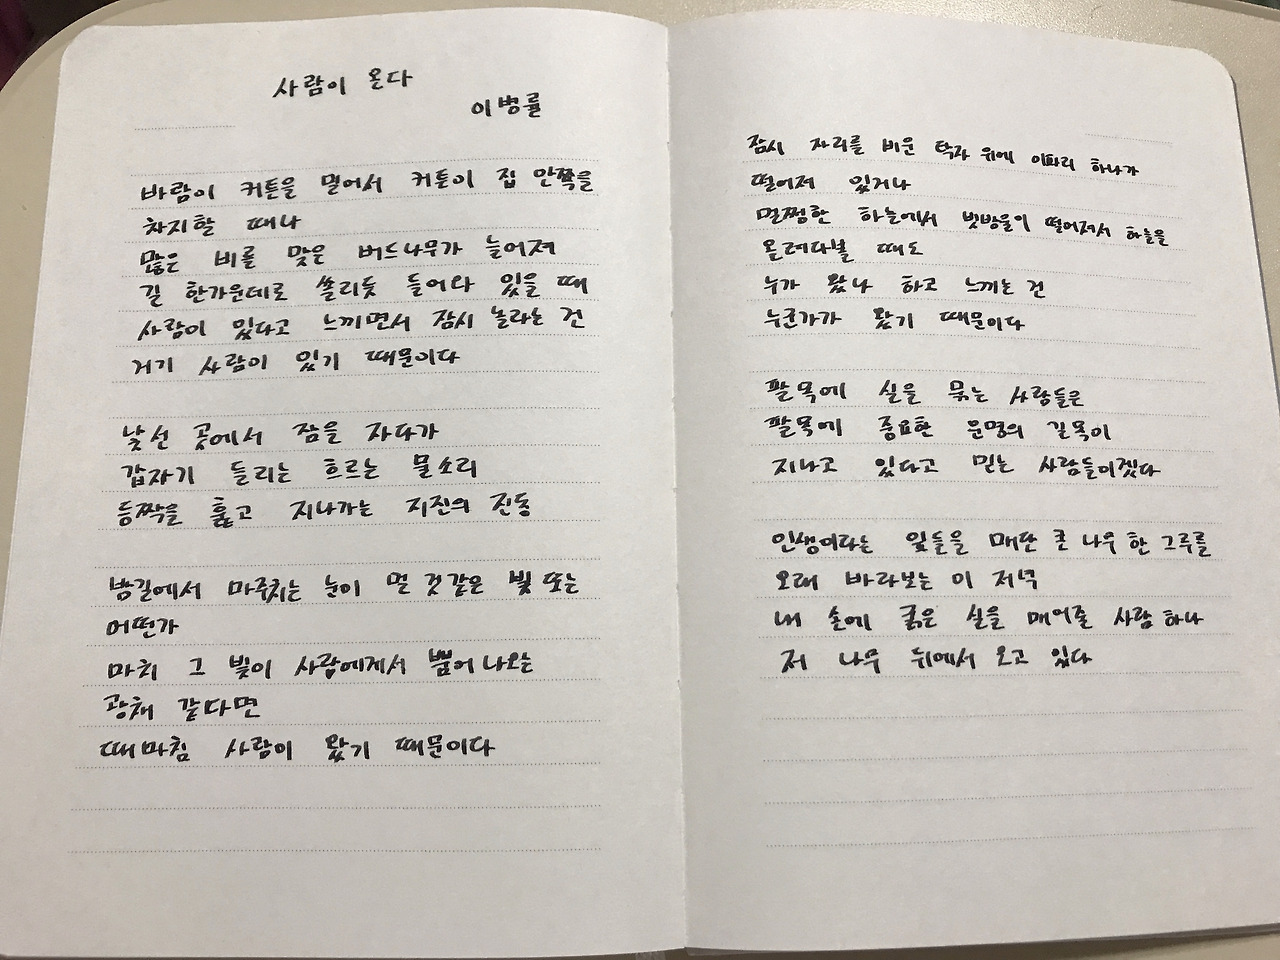 사람이 온다
이병률
바람이 커튼을 밀어서 커튼이 집 안쪽을
차지할 때나
많은 비를 맞은 버드나무가 늘어져
길 한가운데로 쏠리듯 들어와 있을 때
사람이 있다고 느끼면서 잠시 놀라는 건
거기 사람이 있기 때문이다
낯선 곳에서 잠을 자다가
갑자기 들리는 흐르는 물소리
등짝을 훑고 지나가는 지진의 진동
밤길에서 마주치는 눈이 먼 것 같은 빛 또는
어떤가
마치 그 빛이 사람에게서 뿜어나오는
광채 같다면
때마침 사람이 왔기 때문이다
잠시 자리를 비운 탁자 위에 이파리 하나가
떨어져 있거나
멀쩡한 하늘에서 빗방울이 떨어져서 하늘을
올려다볼 때도
누가 왔나 하고 느끼는 건
누군가가 왔기 때문이다
팔목에 실을 묶는 사람들은
팔목에 중요한 운명의 길목이
지나고 있다고 믿는 사람들이겠다
인생이라는 잎들을 매단 큰 나무 한 그루를
오래 바라보는 이 저녁
내 손에 굵은 실을 매어줄 사람 하나
저 나무 뒤에서 오고 있다